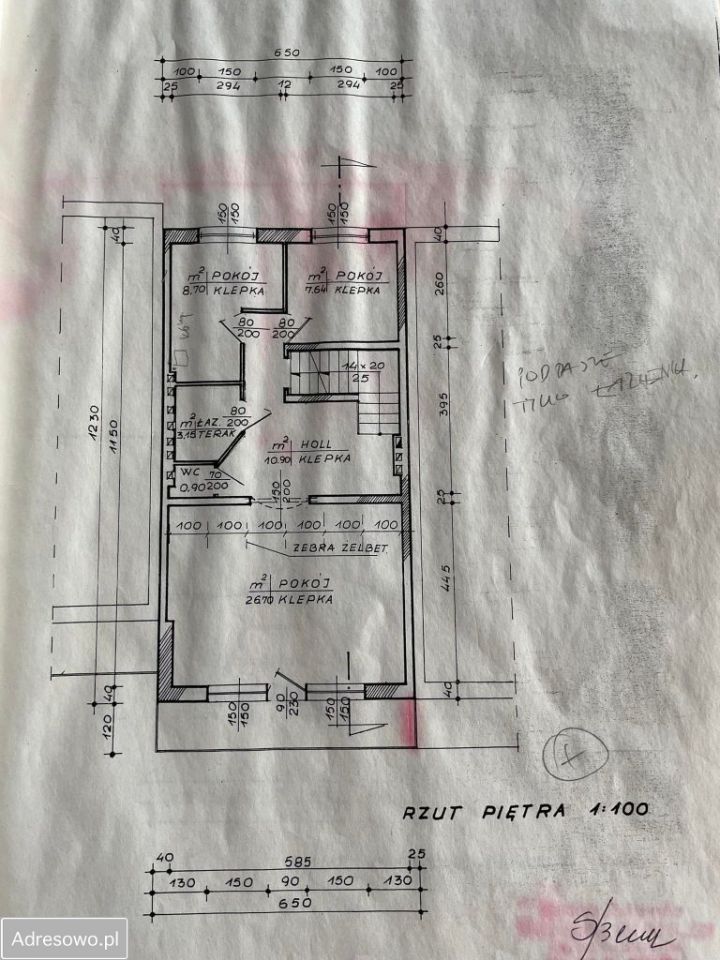 650
100 150 150 100
25 294 12 294 25
150 150
150 150
40
40
m² POKÓJ
8.70 KLEPKA
m² POKÓJ
7.64 KLEPKA
260
80 80
200 200
25
14×20
25
PODDASZE
TYLKO
395
1230
1150
80
m² ŁAZ. 200
3.15 TERAK
m² HOLL
10.90 KLEPKA
WC 70
0.90 200
150
200
25
100 100 100 100 100 100
ŻEBRA ŻELBET.
m² POKÓJ
26.70 KLEPKA
445
40
40
150 150
90
230
150 150
120
RZUT PIĘTRA 1:100
40 585 25
130 150 90 150 130
650
Adresowo.pl